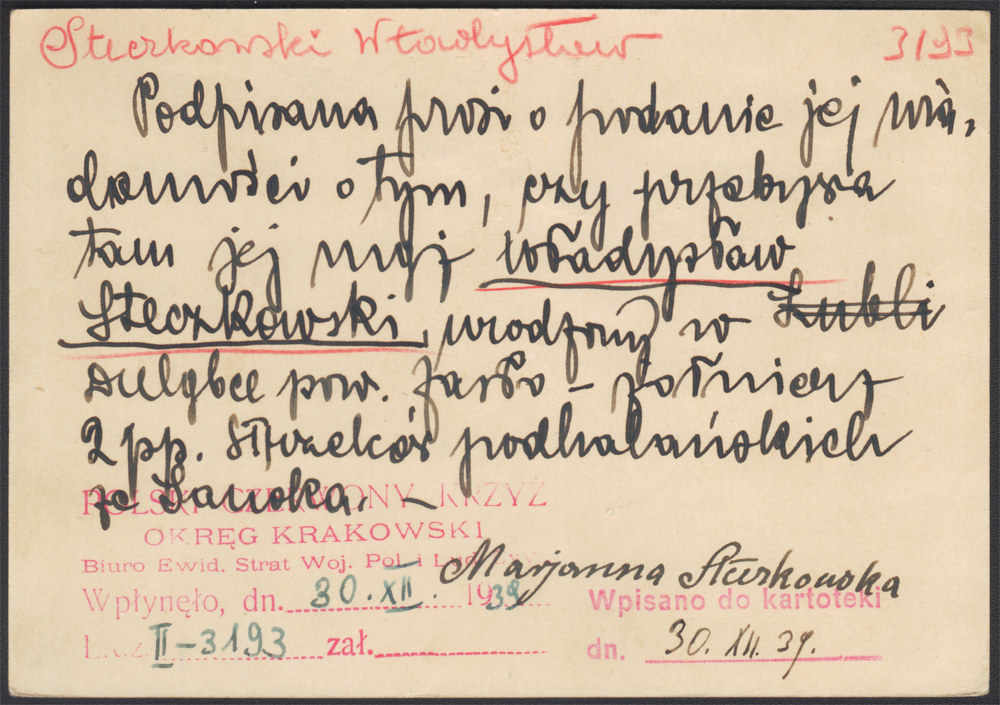 Steczkowski Władysław 3193
Podpisana prosi o podanie jej wia-
domości o tym, czy przebywa
tam jej mąż Władysław
Steczkowski, urodzony w Lubli
pow. Jasło – żołnierz
2 pp. strzelców podhalańskich
ze Sanoka. –
POLSKI CZERWONY KRZYŻ
OKRĘG KRAKOWSKI
Biuro Ewid. Strat Woj. Pol. i
Marjanna Steczkowska
Wpłynęło, dn. 30. XII. 1939
Wpisano do kartoteki
L. cz. II-3193 zał.
dn. 30. XII. 39.